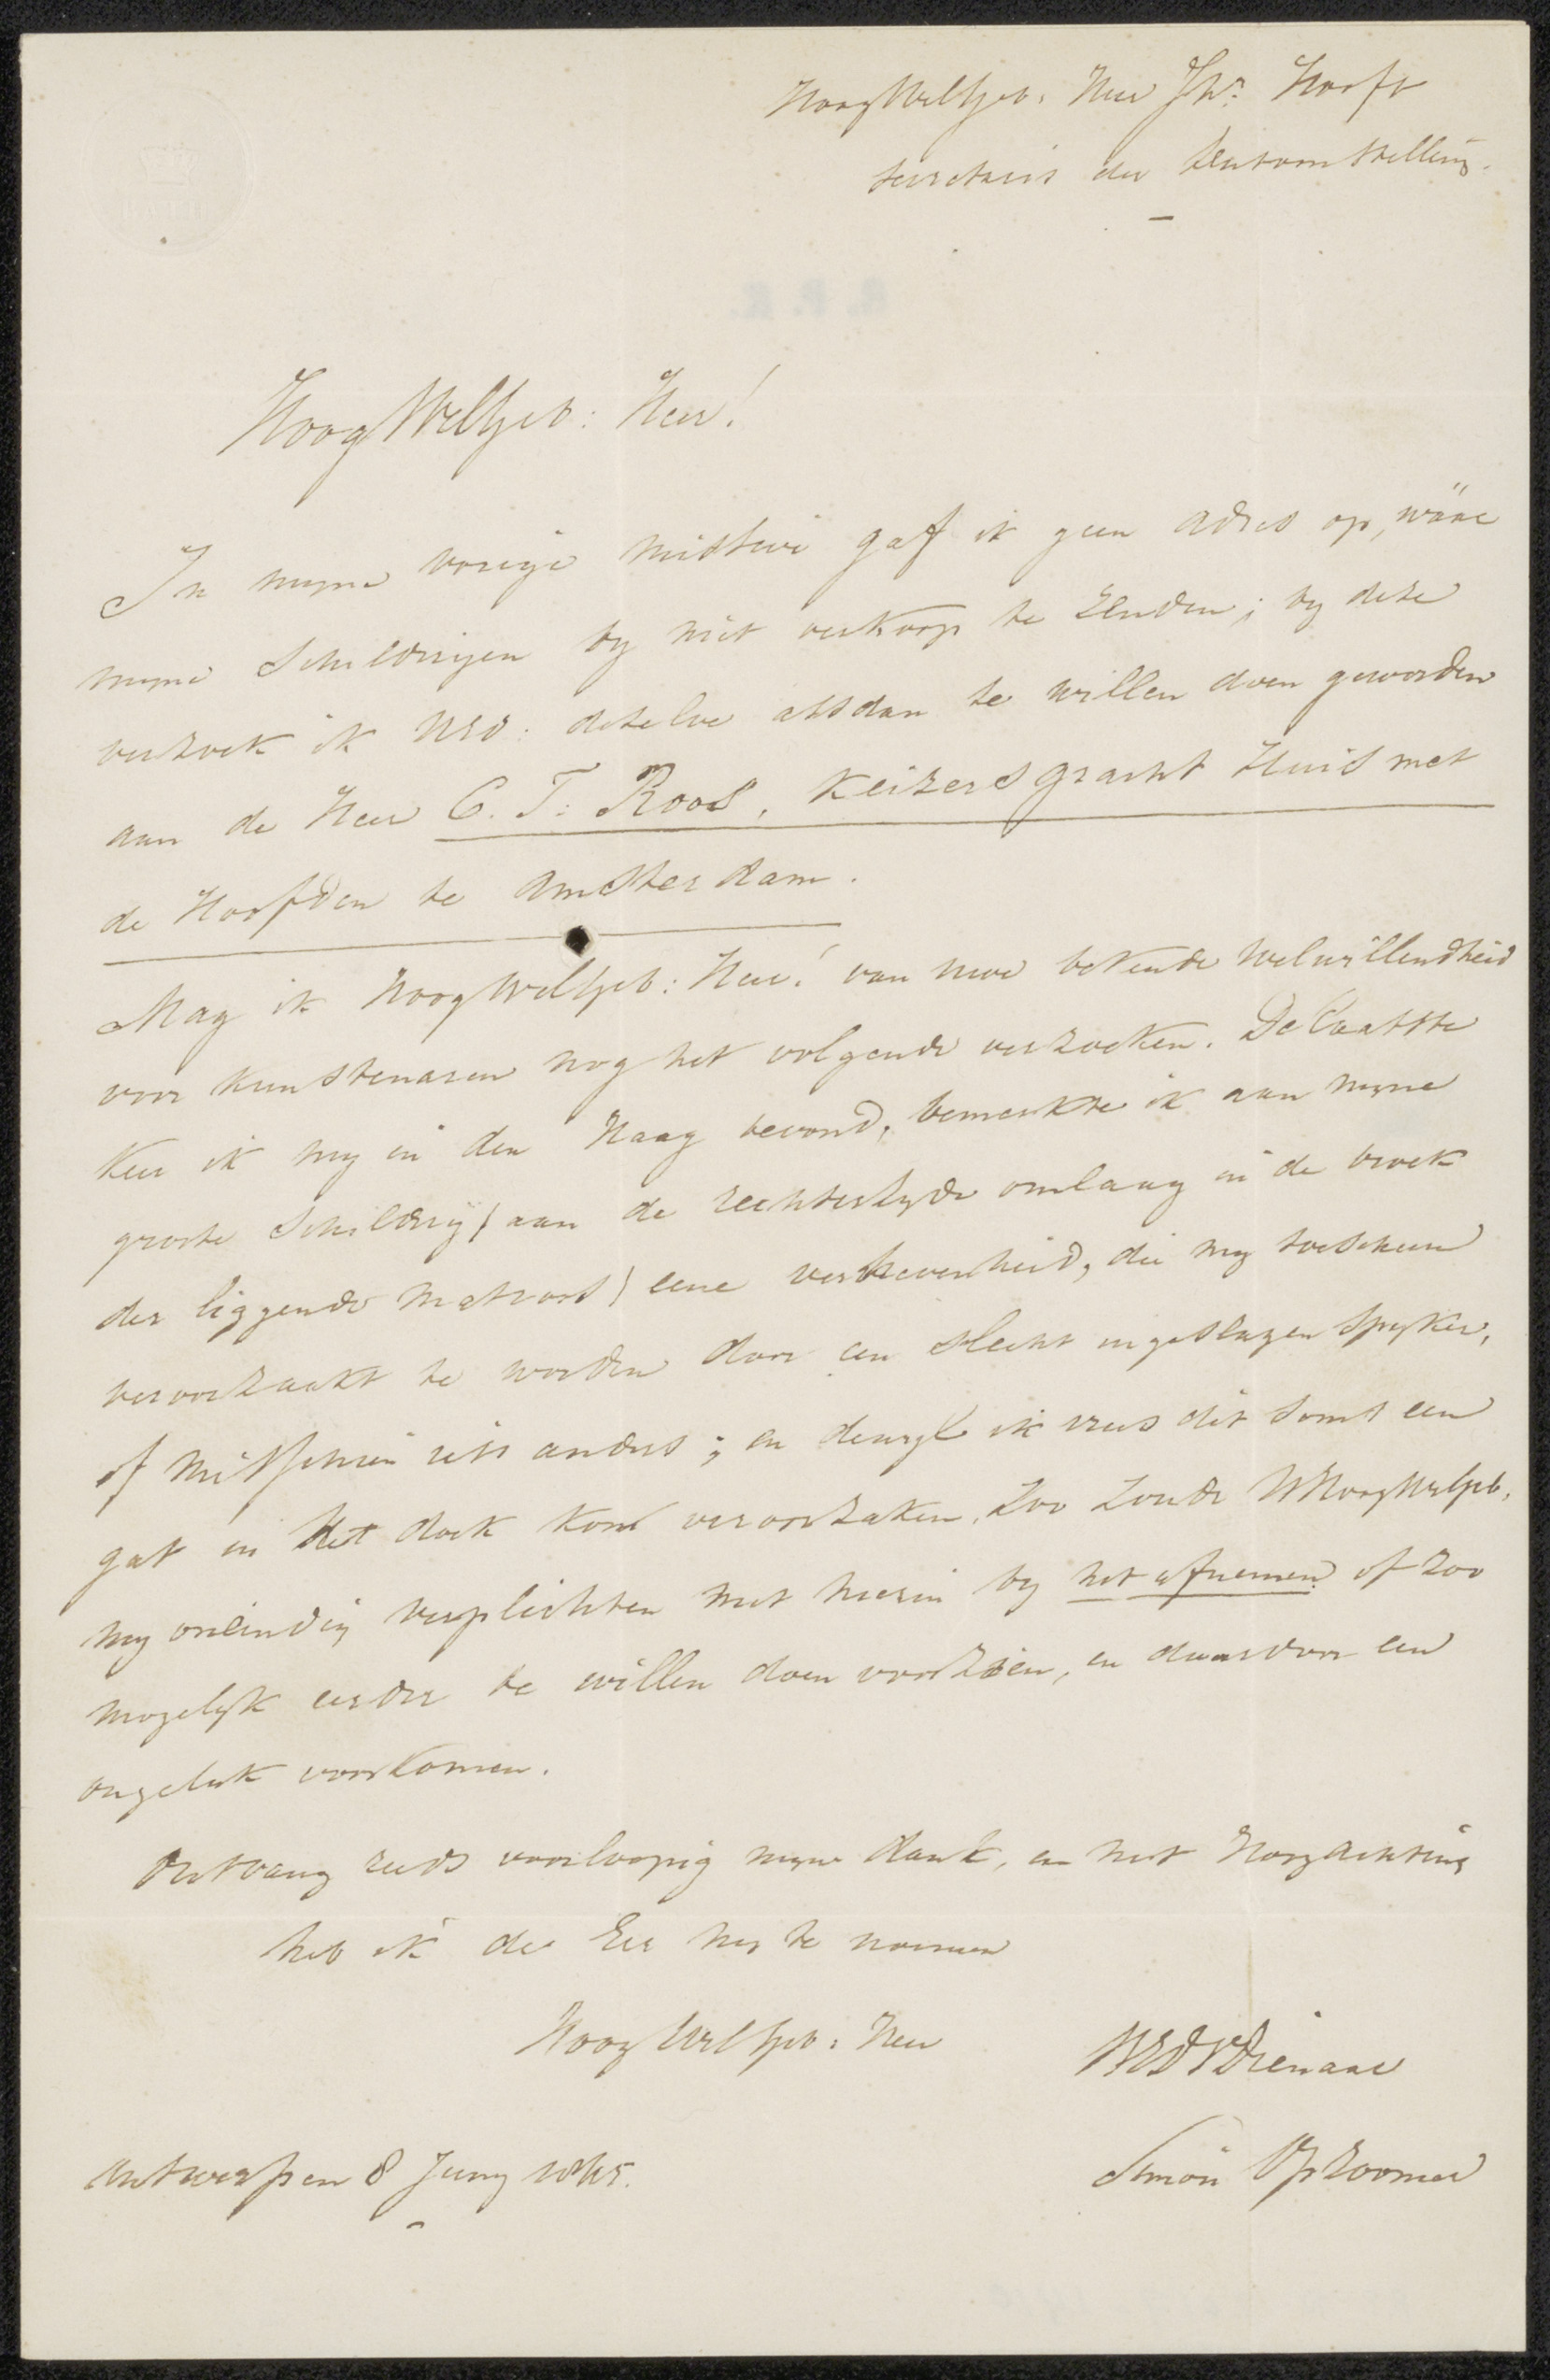 HoogWelGeb: Heer Jhr. Hooft
secretaris der tentoonstelling.
HoogWelGeb: Heer!
In myne vorige missive gaf ik geen adres op, wäar
myne Schilderijen by niet verkoop te zenden; by deze
verzoek ik UEd: dezelve alsdan te willen doen geworden
aan de Heer C. F. Roos, Keizersgracht Huis met
de Hoofden te Amsterdam.
Mag ik HoogWelGeb: Heer! van uwe bekende welwillendheid
voor Kunstenaren nog het volgende verzoeken. De laatste
Keer ik my in den Haag bevond, bemerkte ik aan myne
groote Schildery (aan de rechterzyde omlaag in de broek
der liggende matroos) eene verhevenheid, die my toescheen
veroorzaakt te worden door een slecht ingeslagen Spyker,
of misschien iets anders; en dewyl ik vrees dit soms een
gat in Het doek kon veroorzaken, Zoo Zoude UHoogWelGeb,
my oneindig verplichten met hierin by het afnemen of zoo
mogelyk eerder te willen doen voorzien, en daardoor een
ongeluk voorkomen.
Ontvang reeds voorloopig myne dank, en met Hoogachting
heb ik de Eer my te noemen
HoogWelGeb: Heer
UEdDDienaar
Simon Opzoomer
Antwerpen 8 Juny 1845.